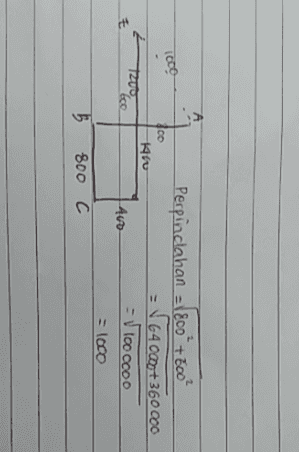 A
1000
800
1400
E
1200
600
400
B 800 C
Perpindahan = √800² + 600²
= √640000 + 360000
= √1000000
= 1000